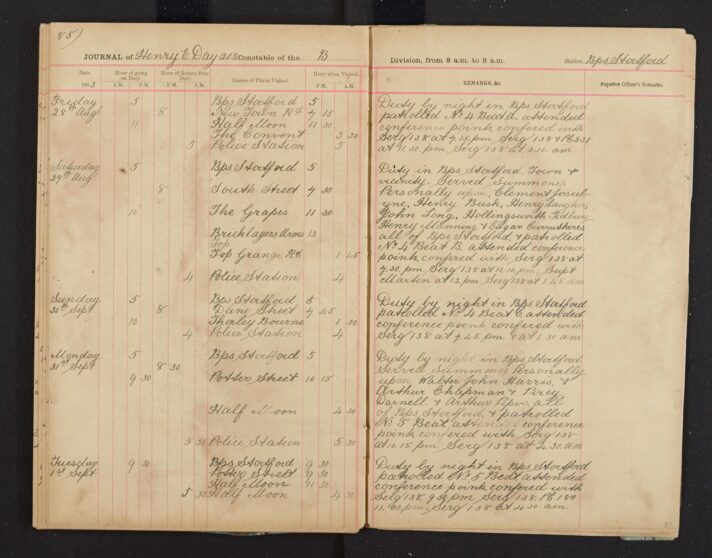 85)
JOURNAL of Henry E Day 208 Constable of the B
Date. Hour of going on Duty. Hour of Return from Duty. Names of Places Visited. Hour when Visited.
A.M. P.M. A.M. P.M. P.M. A.M.
Friday 5 Bps Stortford 5
28th Aug 8 New Town Rd 7 15
11 Half Moon 11 30
The Convent 3 30
5 Police Station 5
Saturday 5 Bps Stortford 5
29th Aug
8 South Street 7 30
10 The Grapes 11 30
Bricklayers Arms 12
Top
Top Grange Rd 1 45
4 Police Station 4
Sunday 5 Bps Stortford 5
30th Sept 8 Dane Street 7 45
10 Thorley Bourne 1 30
4 Police Station 4
Monday 5 Bps Stortford 5
31st Sept 8 30
9 30 Potter Street 10 15
Half Moon 4 30
5 30 Police Station 5 30
Tuesday 9 30 Bps Stortford 9 30
1st Sept Potter Street 9 50
Half Moon 11 30
5 30 Half Moon 4 30
Division, from 8 a.m. to 8 a.m. Station Bps Stortford
REMARKS, &c. Superior Officer's Remarks.
Duty by night in Bps Stortford
patrolled No 4 Beat attended
conference points confered with
Serg 138 at 7.15 pm. Serg 138 & Pc 231
at 11.30 pm. Serg 138 at 3.30 am
Duty in Bps Stortford, Town &
vicinity. Served Summons
Personally upon, Clement Josel-
yne, Henry Bush, Henry
John Long, Hollingsworth Tidbury
Henry Manning & Edgar
all of Bps Stortford, & patrolled
No 4 Beat B, attended conference
points, confered with Serg 138 at
7.30 pm, Serg 138 at 11.30 pm, Supt
Martin at 12 pm. Serg 138 at 1.45 am
Duty by night in Bps Stortford
patrolled No 4 Beat attended
conference points confered with
Serg 138 at 7.45 pm & at 1.30 am
Duty by night in Bps Stortford
Served Summons Personally
upon Walter John Harris, &
Arthur Chapman & Percy
Darnell, & Arthur Piper all
of Bps Stortford, & patrolled
No 5 Beat, attended conference
points confered with Serg 138
at 10.15 pm, Serg 138 at 4.30 am
Duty by night in Bps Stortford
patrolled No 5 Beat attended
conference points confered with
Serg 138, 9.50 pm Serg 138, Pc 180
11.30 pm, Serg 138 at 4.30 am